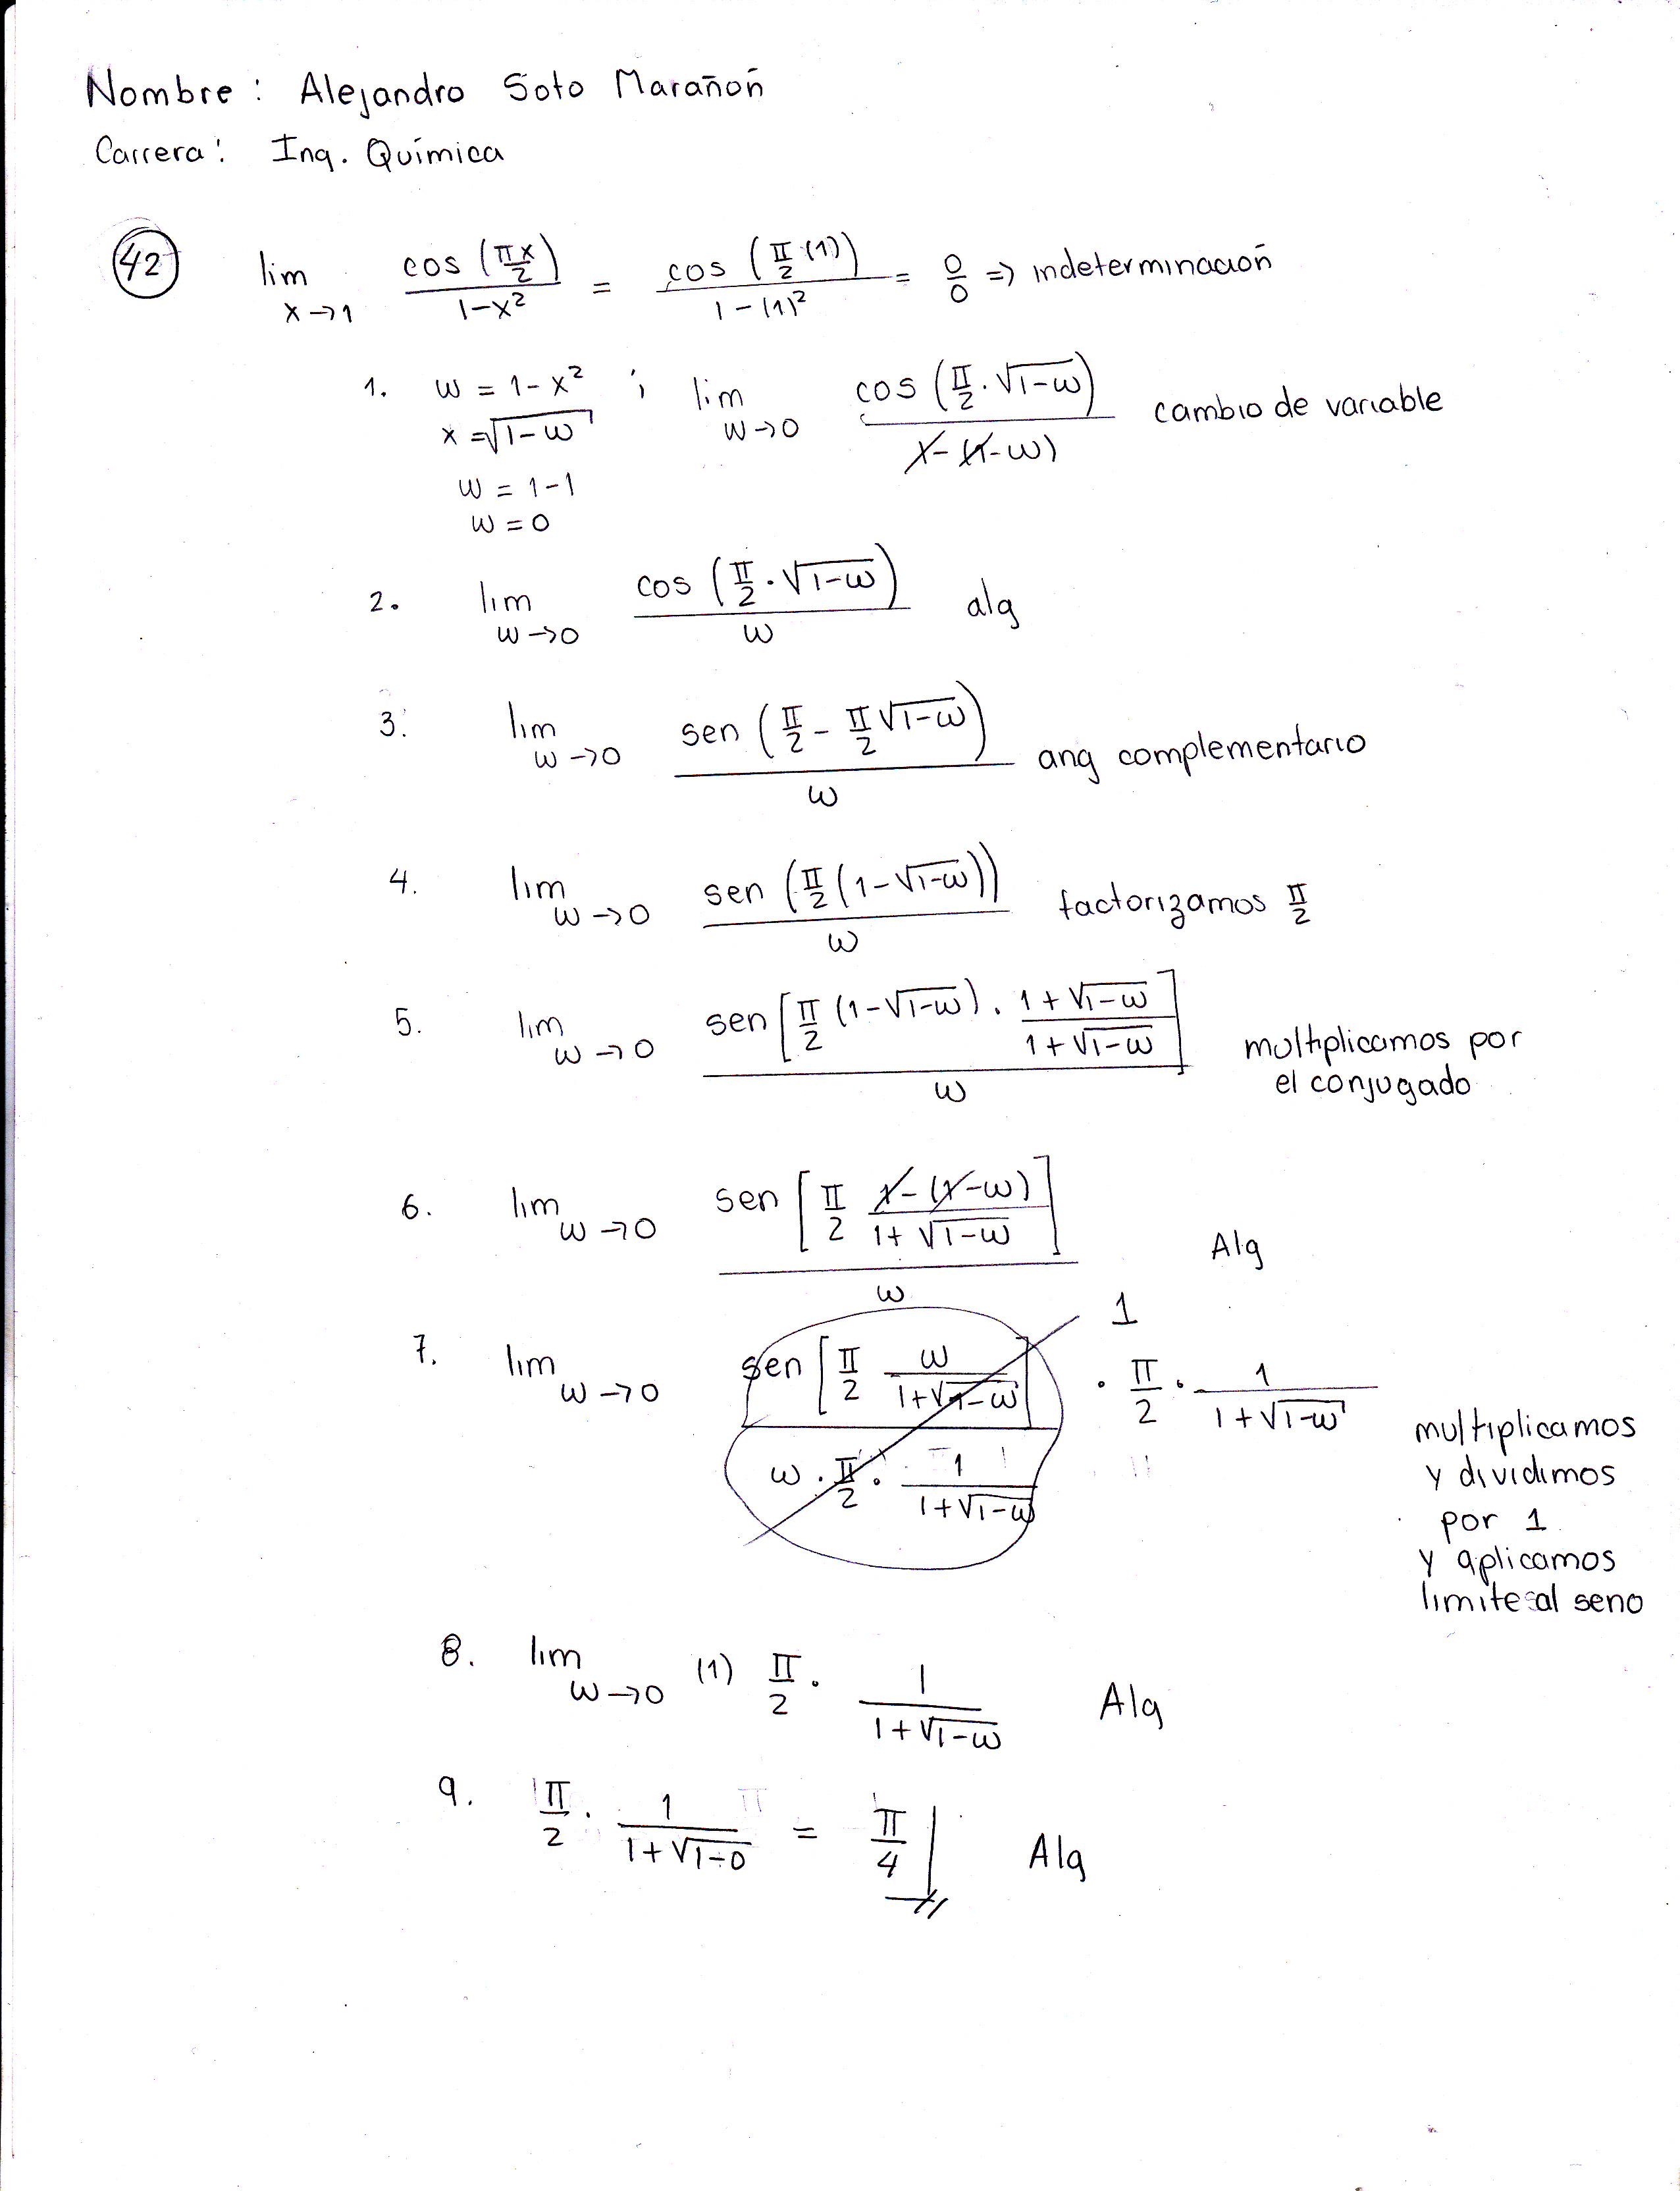 Nombre : Alejandro Soto Marañoñ
Carrera : Ing. Química
42 lim x→1 cos (πx/2) / 1-x² = cos (π/2 (1)) / 1-(1)² = 0/0 => indeterminacioñ
1. w = 1-x² ; lim w→0 cos (π/2 · √1-w) / 1-(1-w) cambio de variable
x = √1-w
w = 1-1
w = 0
2. lim w→0 cos (π/2 · √1-w) / w alg
3. lim w→0 sen (π/2 - π/2 √1-w) / w ang complementario
4. lim w→0 sen (π/2 (1-√1-w)) / w factorizamos π/2
5. lim w→0 sen [π/2 (1-√1-w) · 1+√1-w / 1+√1-w] / w multiplicamos por
el conjugado
6. lim w→0 sen [π/2 1-(1-w) / 1+√1-w] / w Alg
7. lim w→0 sen [π/2 w / 1+√1-w] / w · π/2 · 1 / 1+√1-w 1 · π/2 · 1 / 1+√1-w
multiplicamos
y dividimos
por 1
y aplicamos
limite al seno
8. lim w→0 (1) π/2 · 1 / 1+√1-w Alg
9. π/2 · 1 / 1+√1-0 = π/4 Alg